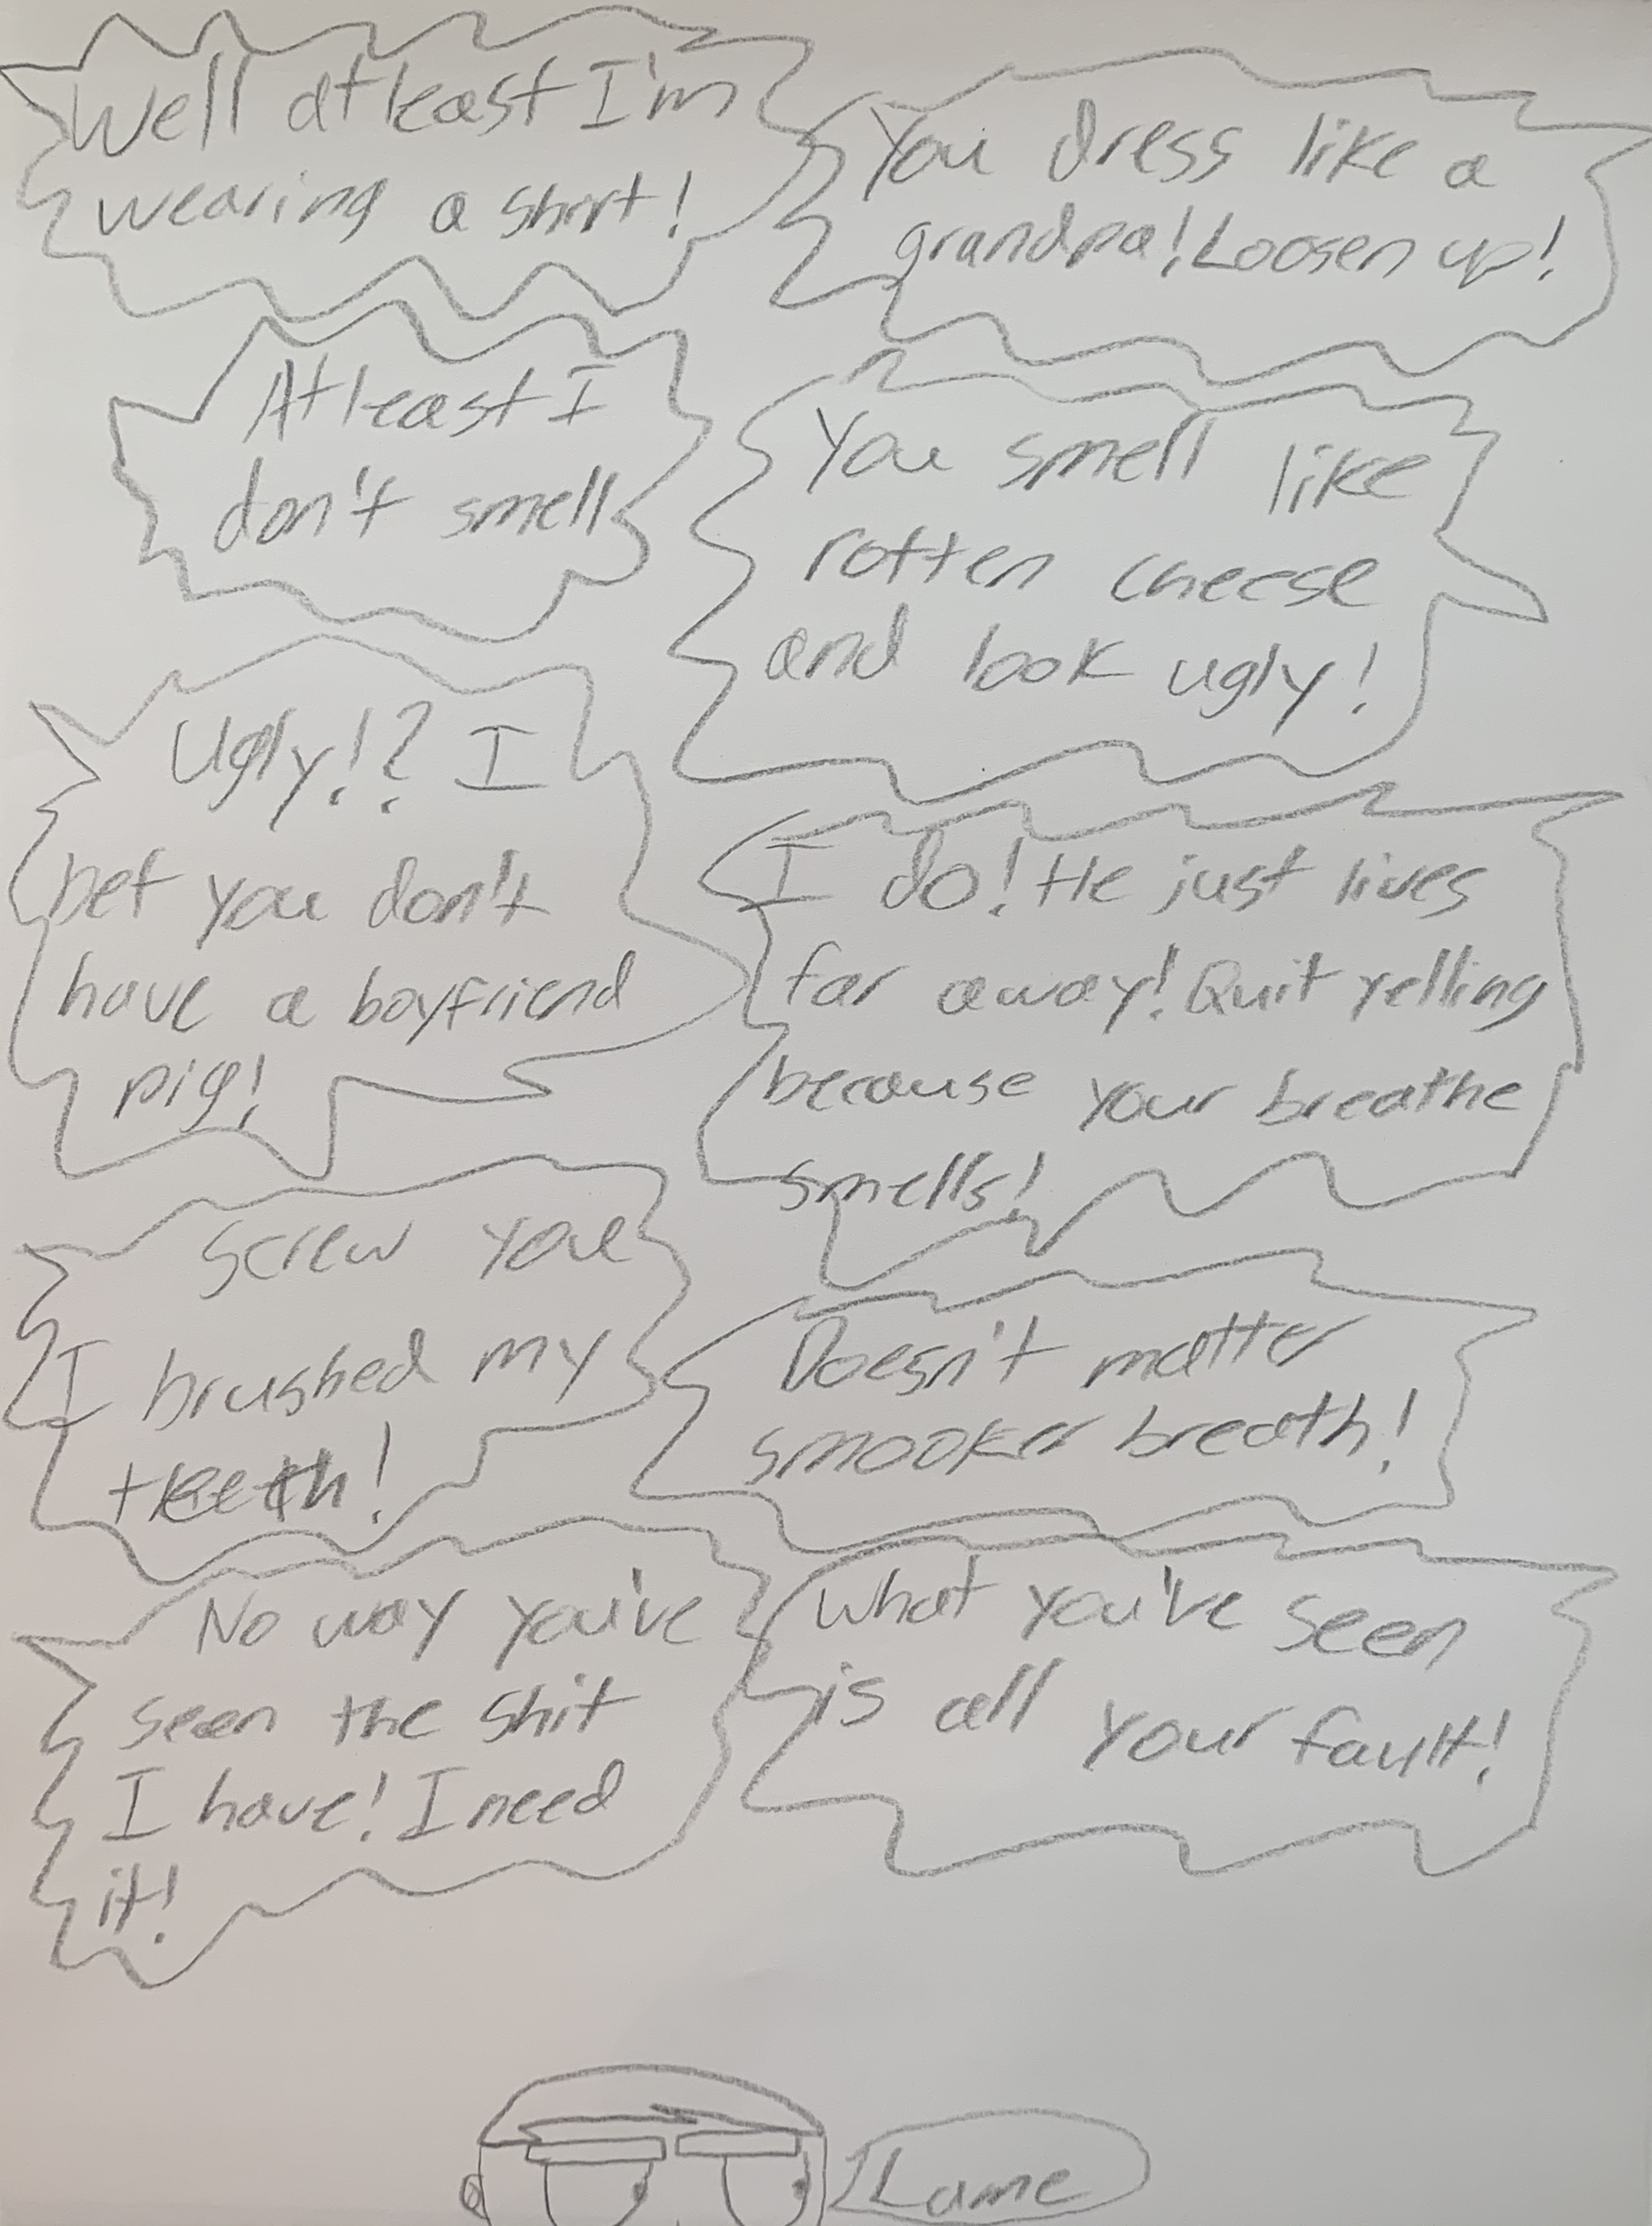 Well at least I'm
wearing a shirt!
You dress like a
grandpa! Loosen up!
At least I
don't smell
You smell like
rotten cheese
and look ugly!
Ugly!? I
bet you don't
have a boyfriend
pig!
I do! He just lives
far away! Quit yelling
because your breathe
smells!
Screw you
I brushed my
teeth!
Doesn't matter
smooker breath!
No way you've
seen the shit
I have! I need
it!
What you've seen
is all your fault!
Lame